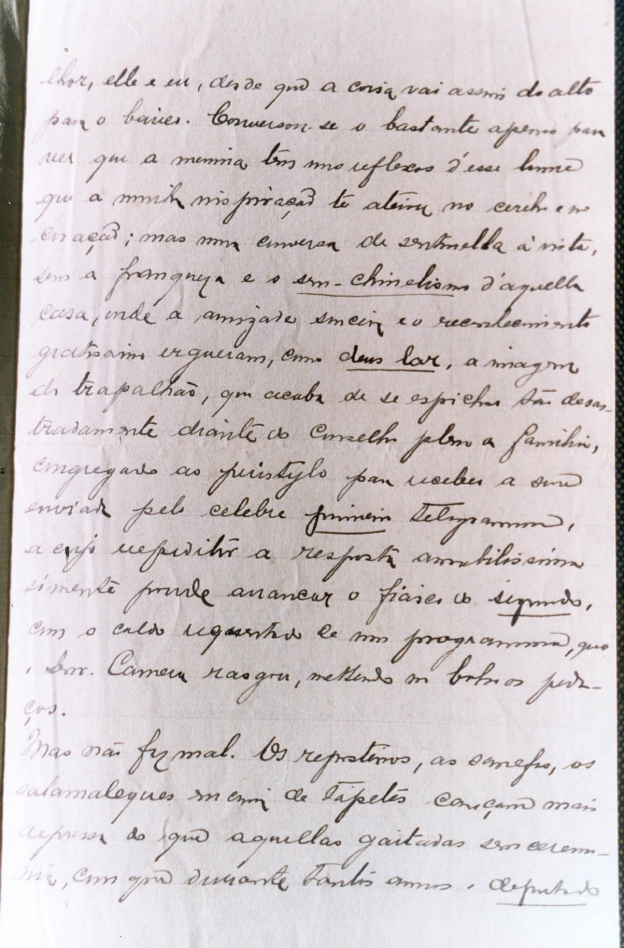 lhor, elle e eu, desde que a coisa vai assim do alto
para o baixo. Conversou-se o bastante apenas para
ver que a menina tem uns reflexos d'esse lume
que a minha inspiração te ateiou no cerebro e no
coração; mas uma conversa de sentinella á vista,
sem a franqueza e o sem-chinelismo d'aquella
casa, onde a amizade sincera e o reconhecimento
gratissimo ergueram, como deus lar, a imagem
do trapalhão, que acaba de se espichar tão desas-
tradamente diante do conselho pleno a familia,
congregado ao peristylo para receber a
enviada pelo celebre primeiro telegramma,
a cujo expeditor a resposta amabilissima
sómente poude arrancar o fiasco do segundo,
com o caldo requentado de um programma, que
o Snr. Camera rasgou, mettendo no bolso os peda-
ços.
Mas não fez mal. Os reposteiros, as sanefas, os
salamaleques em cima de tapetes cançam mais
depressa do que aquellas gaitadas sem ceremo-
nia, com que durante tantos annos o deputado